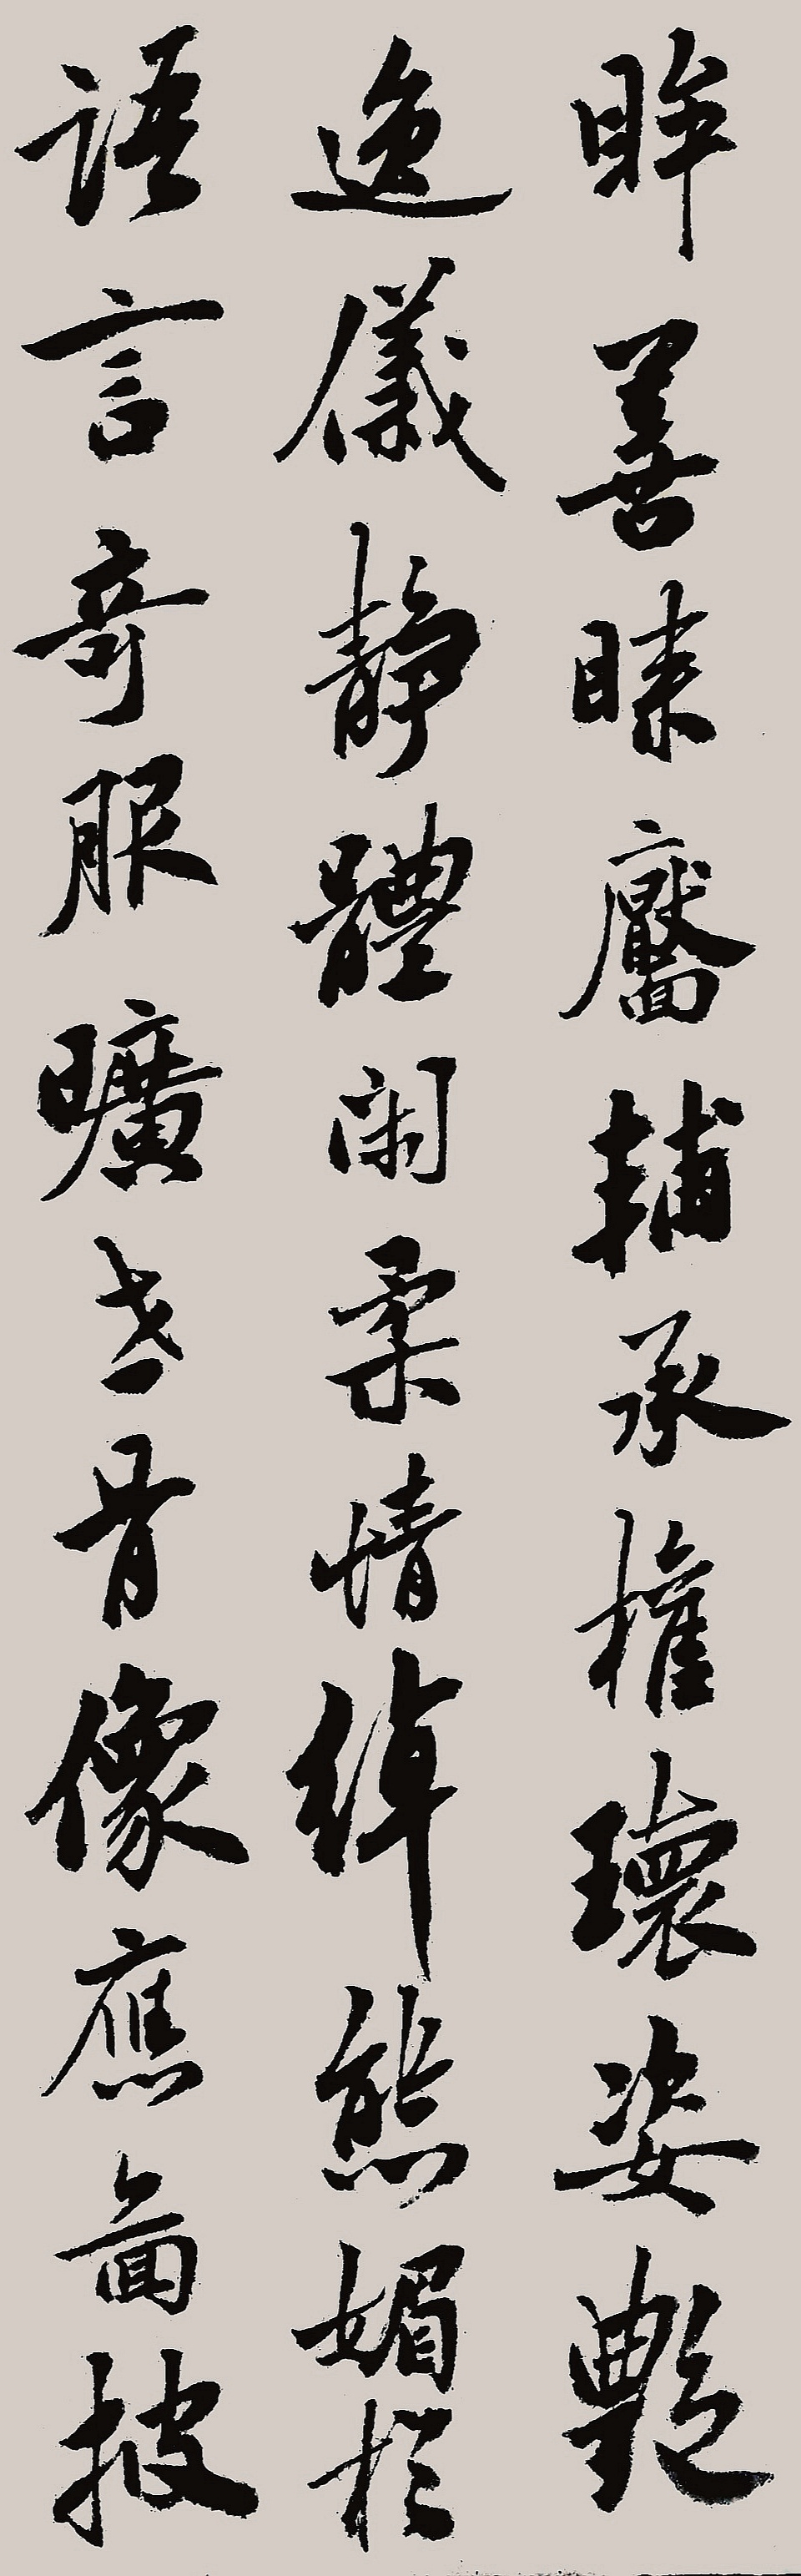 眸善睐靨輔承權瓌姿艷
逸儀靜體閑柔情綽態媚於
語言奇服曠世骨像應圖披